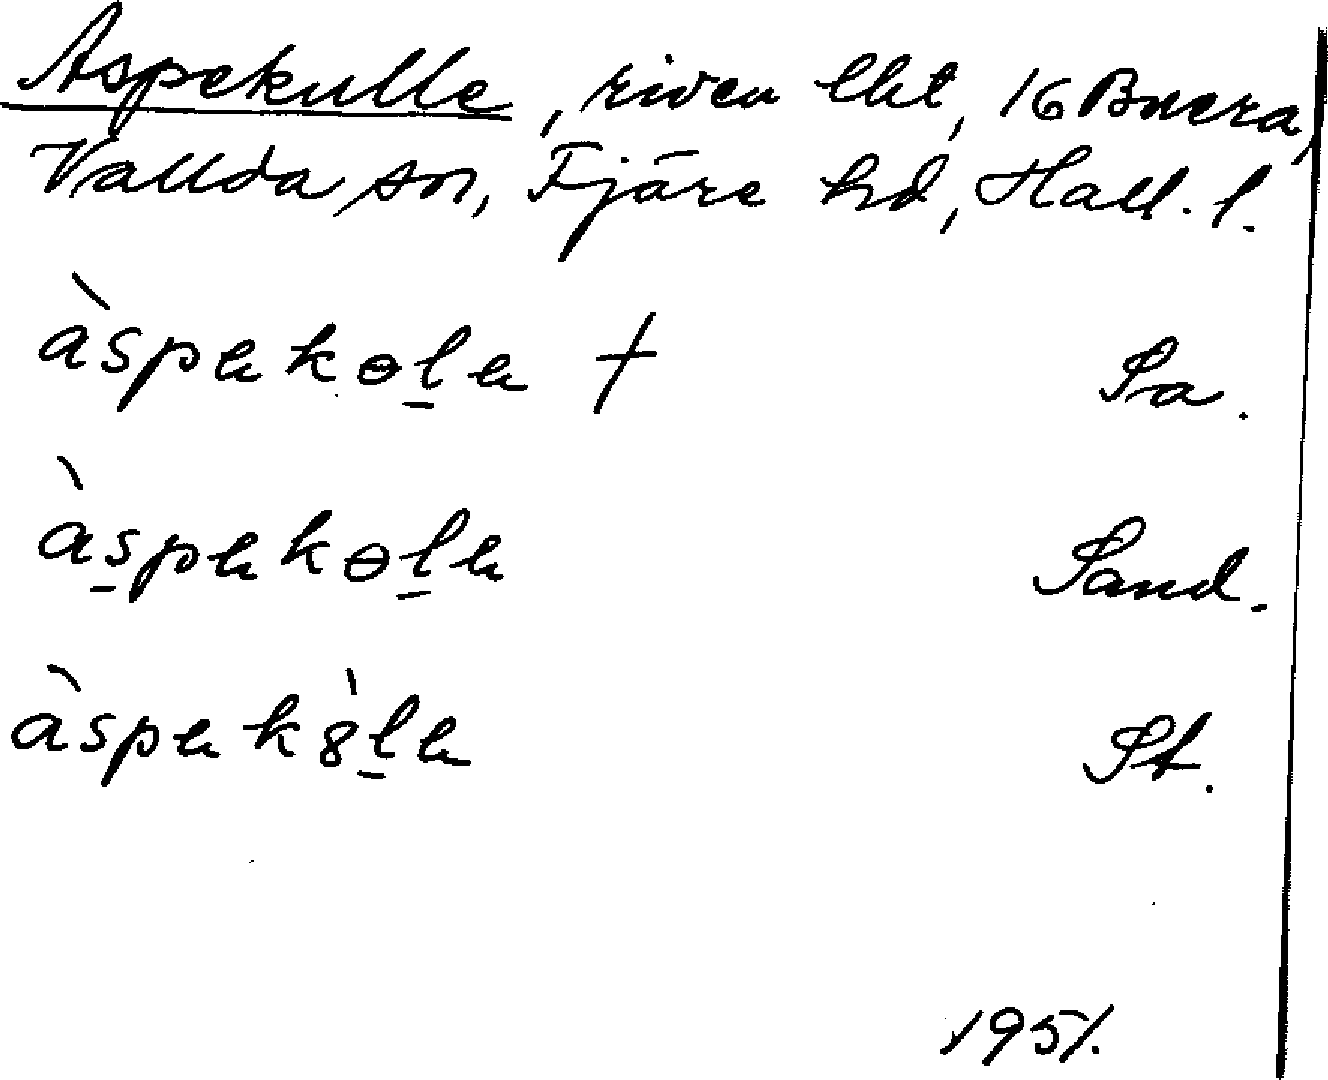 Aspekulle, riven lht, 16 Buera,
Vallda sn, Fjäre hd, Hall. l.
àspəkɵlə † Sa.
àspəkɵlə Sand.
àspəkȣ̀lə St.
1951.